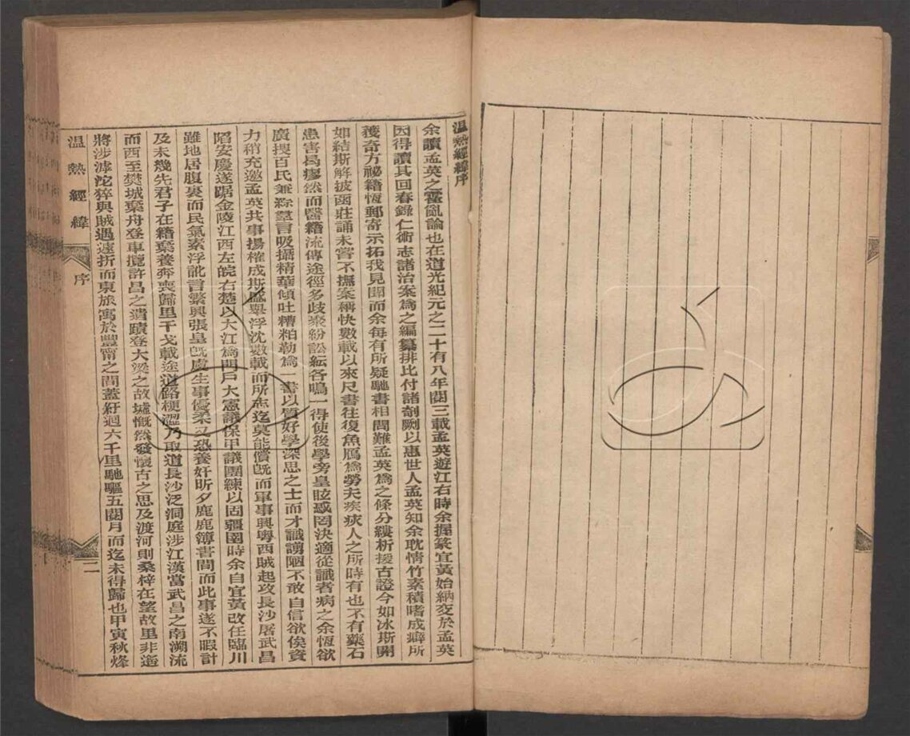 溫熱經緯序
余讀孟英之霍亂論也在道光紀元之二十有八年閱三載孟英遊江右時余握篆宜黃始納交於孟英
因得讀其回春錄仁術志諸治案為之編纂排比付諸剞劂以惠世人孟英知余耽情竹素積嗜成癖所
獲奇方祕籍恆郵寄示拓我見聞而余每有所疑馳書相問難孟英為之條分縷析援古證今如冰斯開
如結斯解披函莊誦未嘗不撫案稱快數載以來尺書往復魚鴈為勞夫疾病人之所時有也不有藥石
患害曷瘳然而醫籍流傳途徑多歧聚紛訟紜各鳴一得使後學旁皇眩惑罔決適從識者病之余恆欲
廣搜百氏兼綜羣言吸攝精華傾吐糟粕勒為一書以質好學深思之士而才識謭陋不敢自信欲俟資
力稍充邀孟英共事揚榷成斯盛舉浮沈數載而所志迄莫能償旣而軍事興粵西賊起攻長沙屠武昌
陷安慶遂踞金陵江西左皖右楚以大江為門戶大憲議保甲議團練以固疆圉時余自宜黃改任臨川
雖地居腹裏而民氣素浮訛言繁興張皇旣慮生事優柔又恐養奸昕夕鹿鹿簿書間而此事遂不暇計
及未幾先君子在籍棄養奔喪歸里干戈載途道路梗澀乃取道長沙泛洞庭涉江漢當武昌之南溯流
而西至樊城棄舟登車攬許昌之遺蹟登大梁之故墟慨然發懷古之思及渡河則桑梓在望故里非遙
將涉滹沱猝與賊遇速折而東旅寓於豐甯之間蓋紆迴六千里馳驅五閱月而迄未得歸也甲寅秋烽
溫熱經緯
序
一